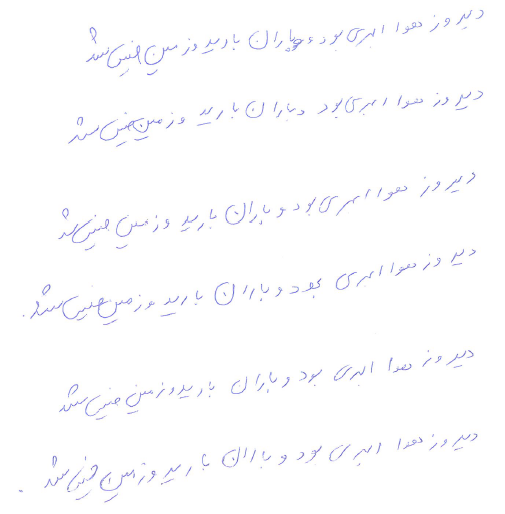 دیروز هوا ابری بود و باران بارید و زمین خیس شد
دیروز هوا ابری بود و باران بارید و زمین خیس شد
دیروز هوا ابری بود و باران بارید و زمین خیس شد
دیروز هوا ابری بود و باران بارید و زمین خیس شد.
دیروز هوا ابری بود و باران بارید و زمین خیس شد
دیروز هوا ابری بود و باران بارید و زمین خیس شد.